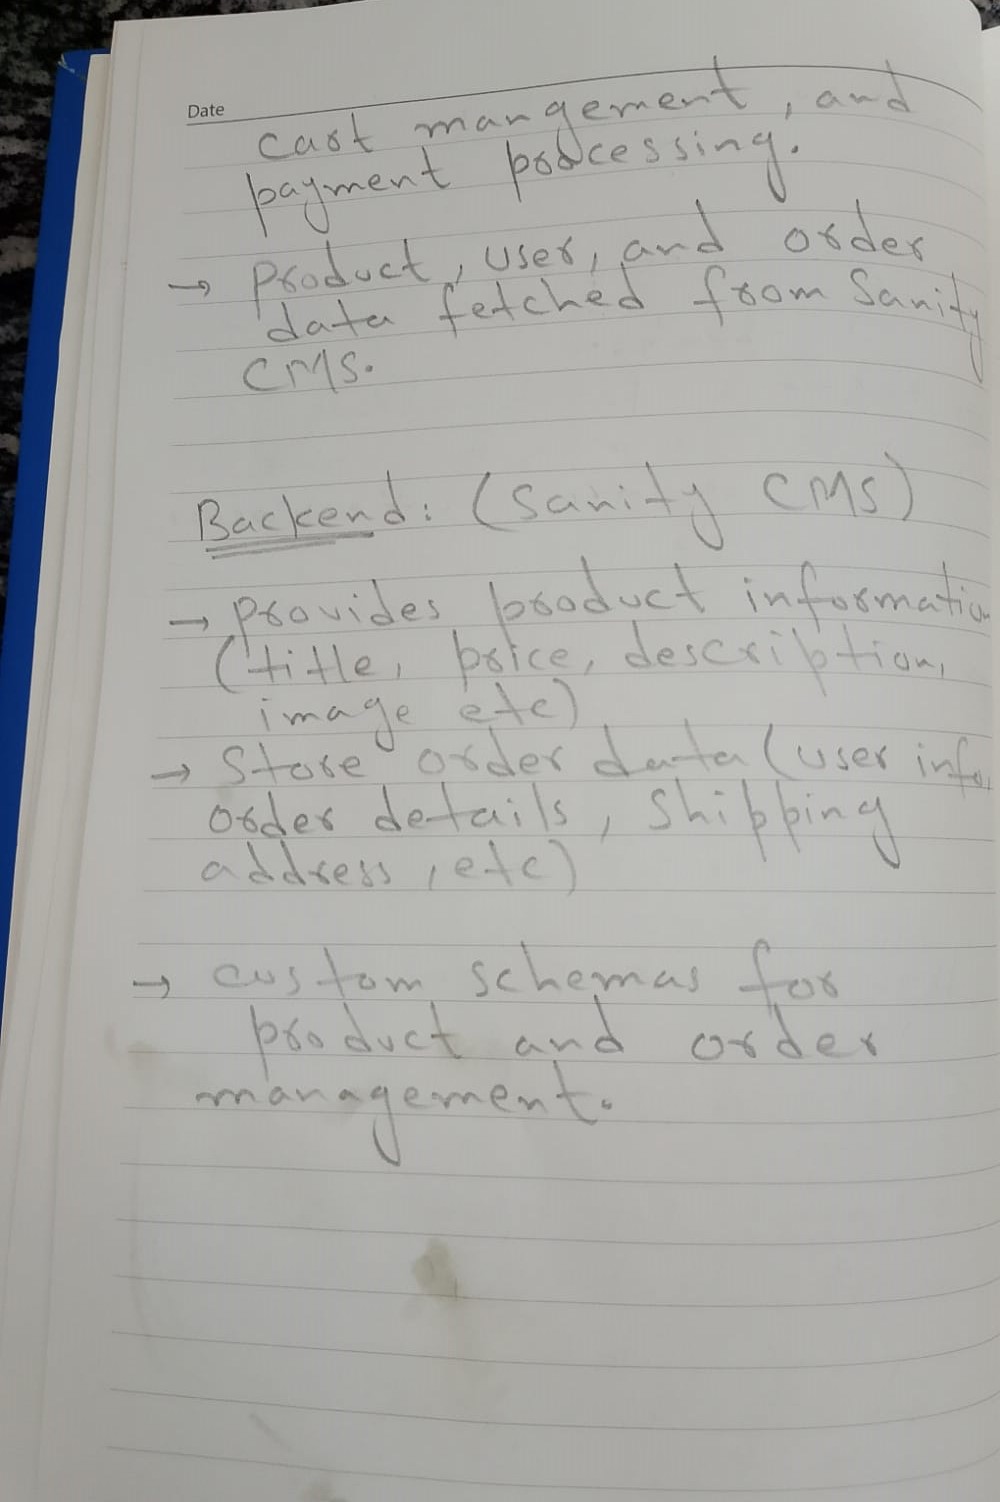 Date
cart mangement, and
payment processing.
→ Product, user, and order
data fetched from Sanity
CMS.
Backend: (Sanity CMS)
→ Provides product informatio
(title, price, description,
image etc)
→ Store order data (user info,
order details, shipping
address, etc)
→ custom schemas for
product and order
management.